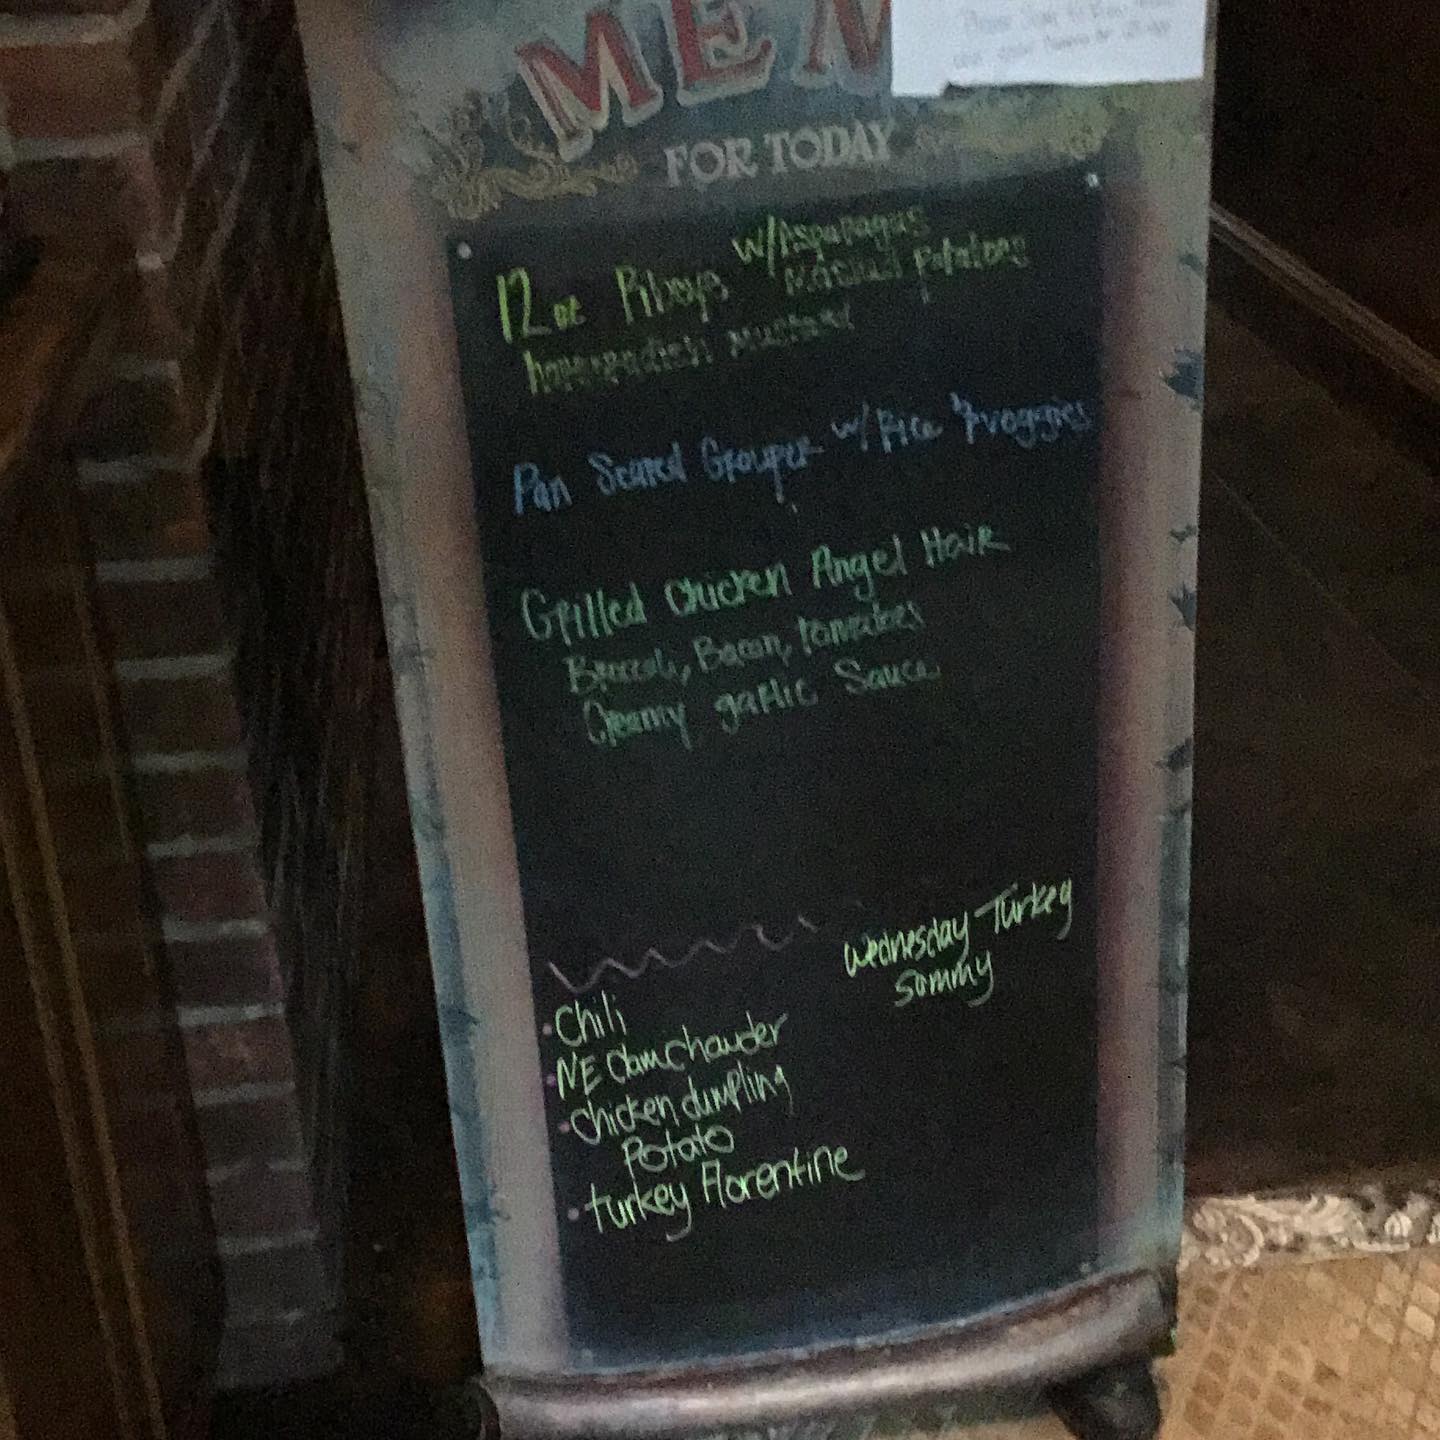 MEN
FOR TODAY
12 oz Ribeye w/Asparagus
Mashed Potatoes
horseradish mustard
Pan Seared Grouper w/ Rice & veggies
Grilled Chicken Angel Hair
Broccoli, Bacon, tomatoes
Creamy garlic Sauce
Wednesday Turkey
Sammy
• Chili
• NE Clam Chowder
• Chicken dumpling
Potato
• turkey Florentine